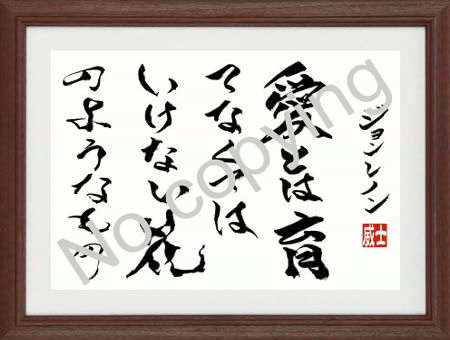 ジョンレノン
威士
愛とは育
てなくては
いけない花
のようなもの
No copying